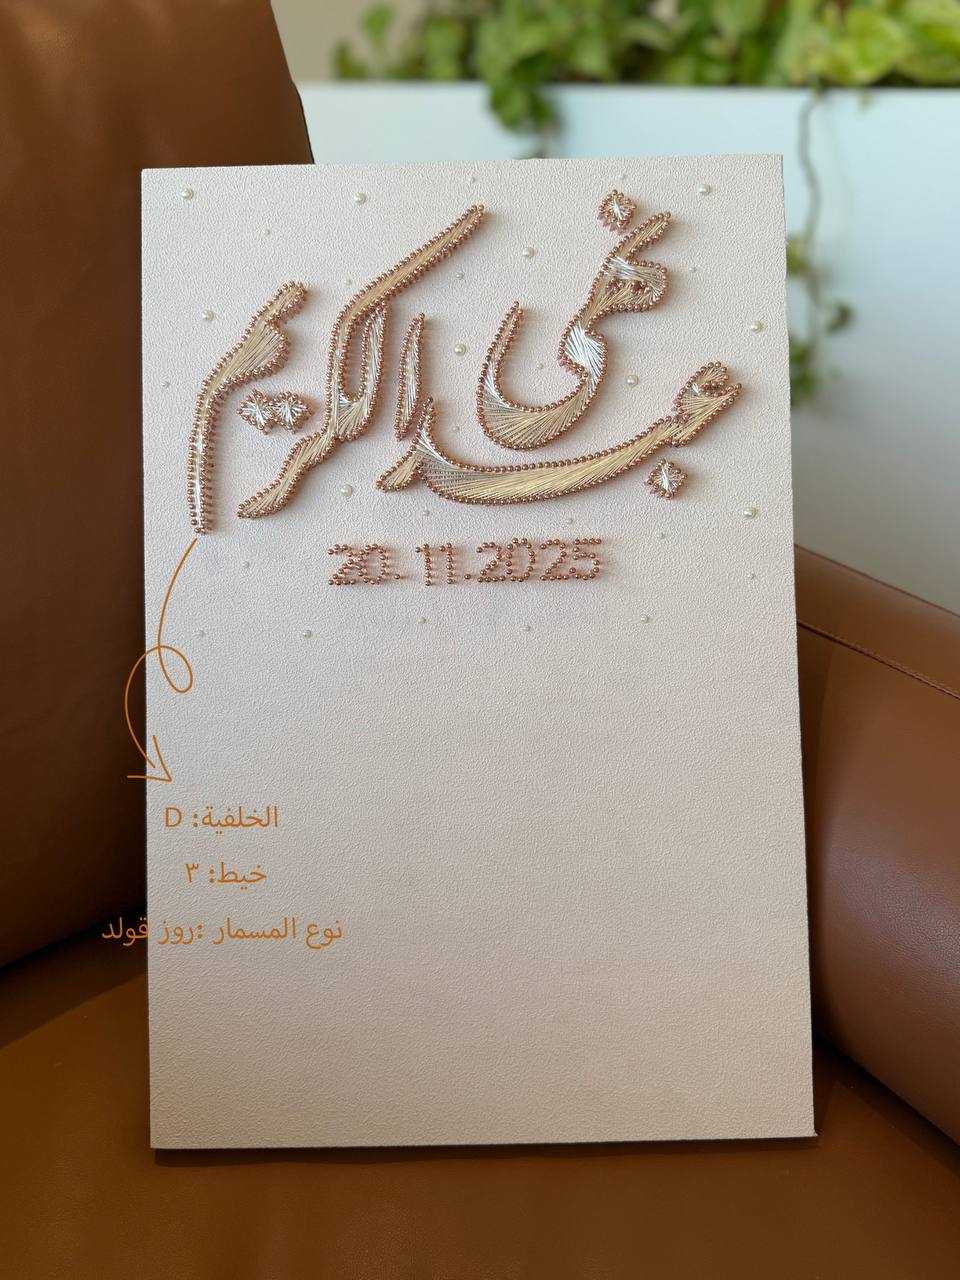 عبدالكريم
20.11.2025
الخلفية: D
خيط: ٣
نوع المسمار :روز قولد